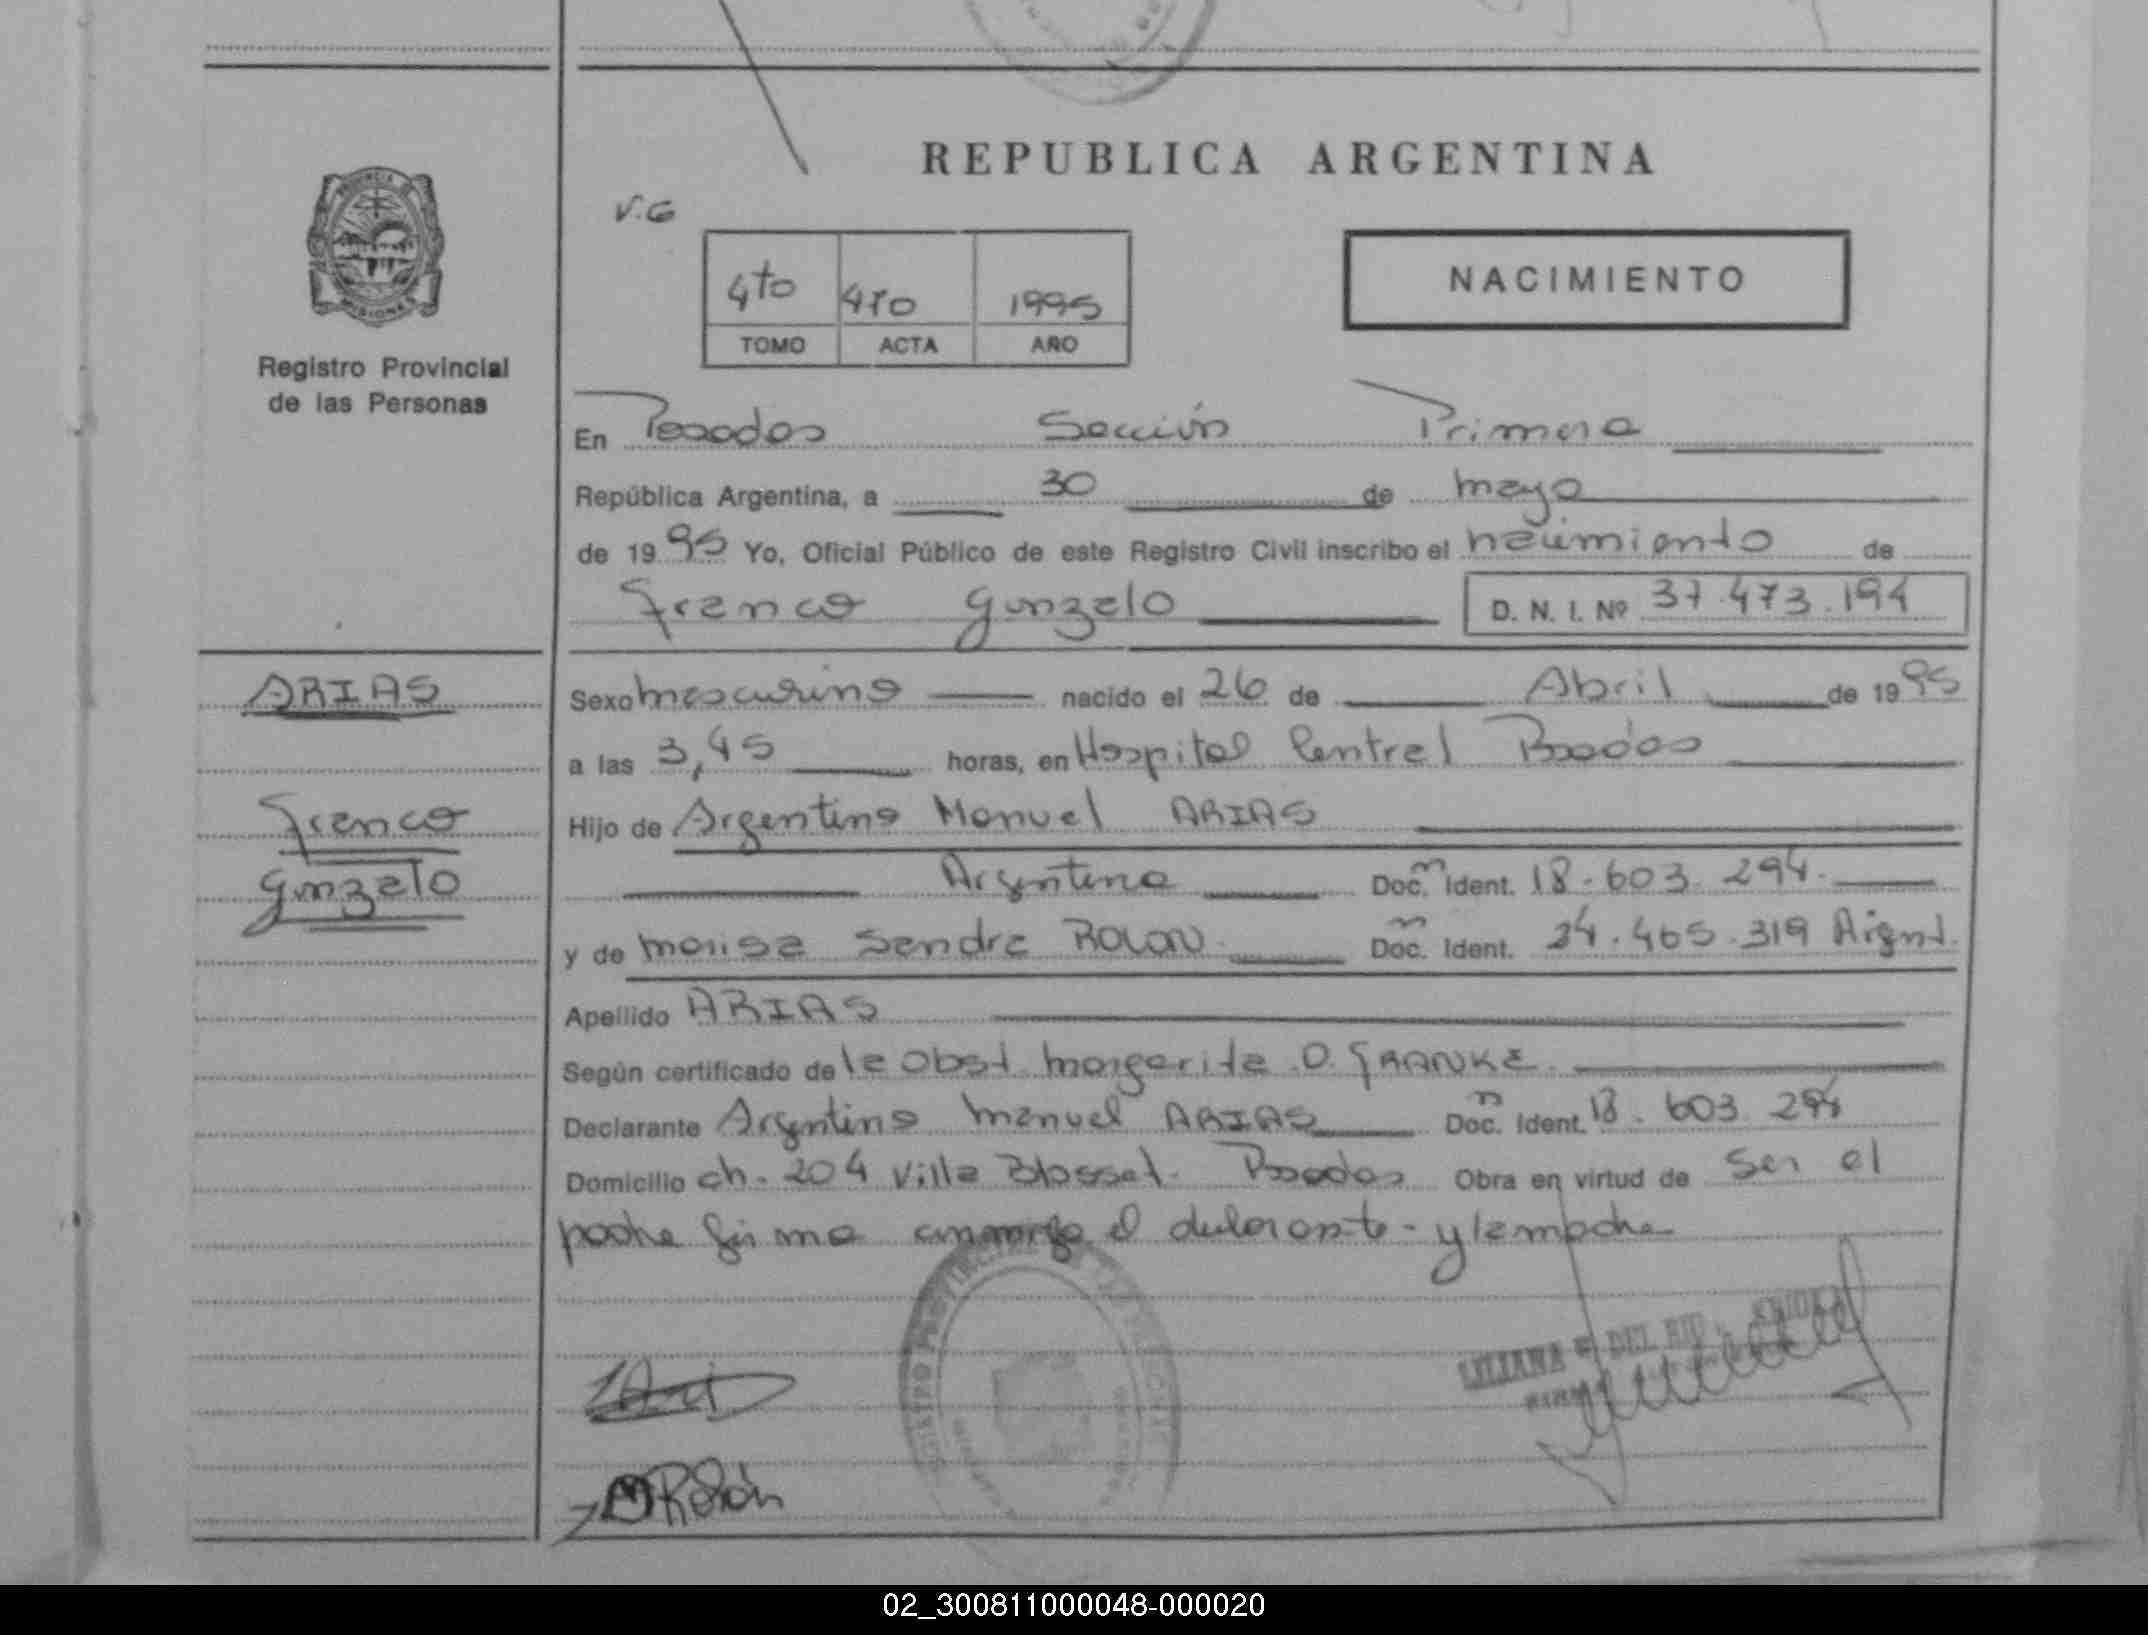 REPUBLICA ARGENTINA
PROVINCIA DE
MISIONES
Registro Provincial
de las Personas
V.G
4to 410 1995
TOMO ACTA AÑO
NACIMIENTO
En Posadas Sección Primera
República Argentina, a 30 de mayo
de 1995 Yo, Oficial Público de este Registro Civil inscribo el nacimiento de
Franco Gonzalo D. N. I. Nº 37.473.194
ARIAS
Franco
Gonzalo
Sexo masculino nacido el 26 de Abril de 1995
a las 3,45 horas, en Hospital Central Posadas
Hijo de Argentino Manuel ARIAS
Argentino Doc. Ident. 18.603.294.
y de Sandra ROLON Doc. Ident. 24.465.319 Argent.
Apellido ARIAS
Según certificado de la Obst. Margarita O. FRANKE.
Declarante Argentino Manuel ARIAS Doc. Ident. 18.603.294
Domicilio ch. 204 Villa Blosset. Posadas Obra en virtud de ser el
padre firma conmigo el declarante - y la madre
LILIANA DEL RIO
Rolón
02_300811000048-000020